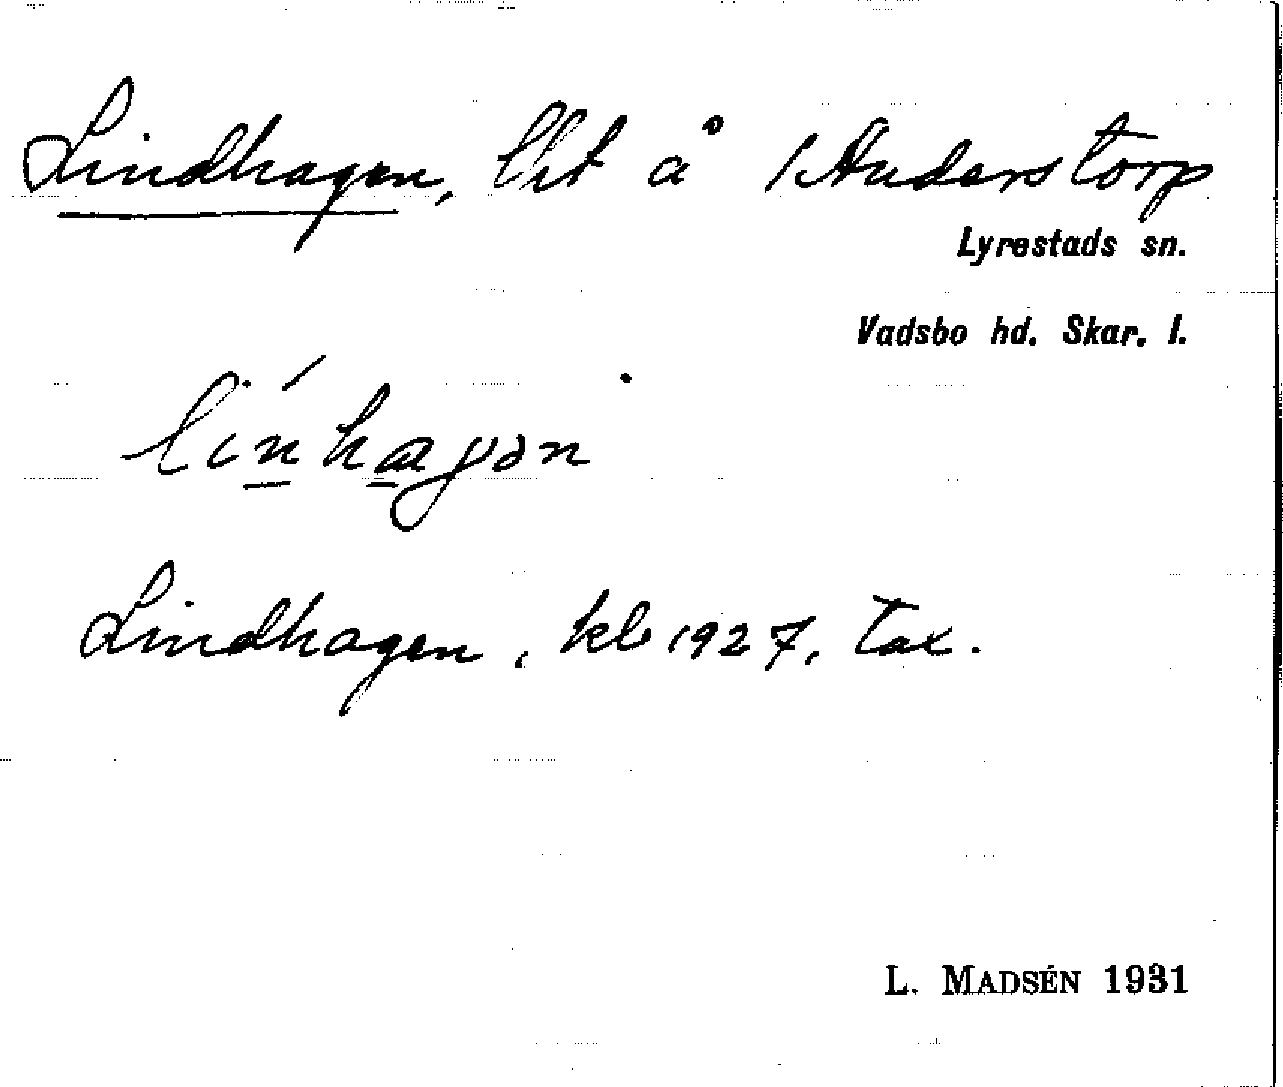 Lindhagen, lht å 1 Anderstorp
Lyrestads sn.
Vadsbo hd. Skar. l.
Lindhagen, kb 1927, tax.
L. MADSÉN 1931